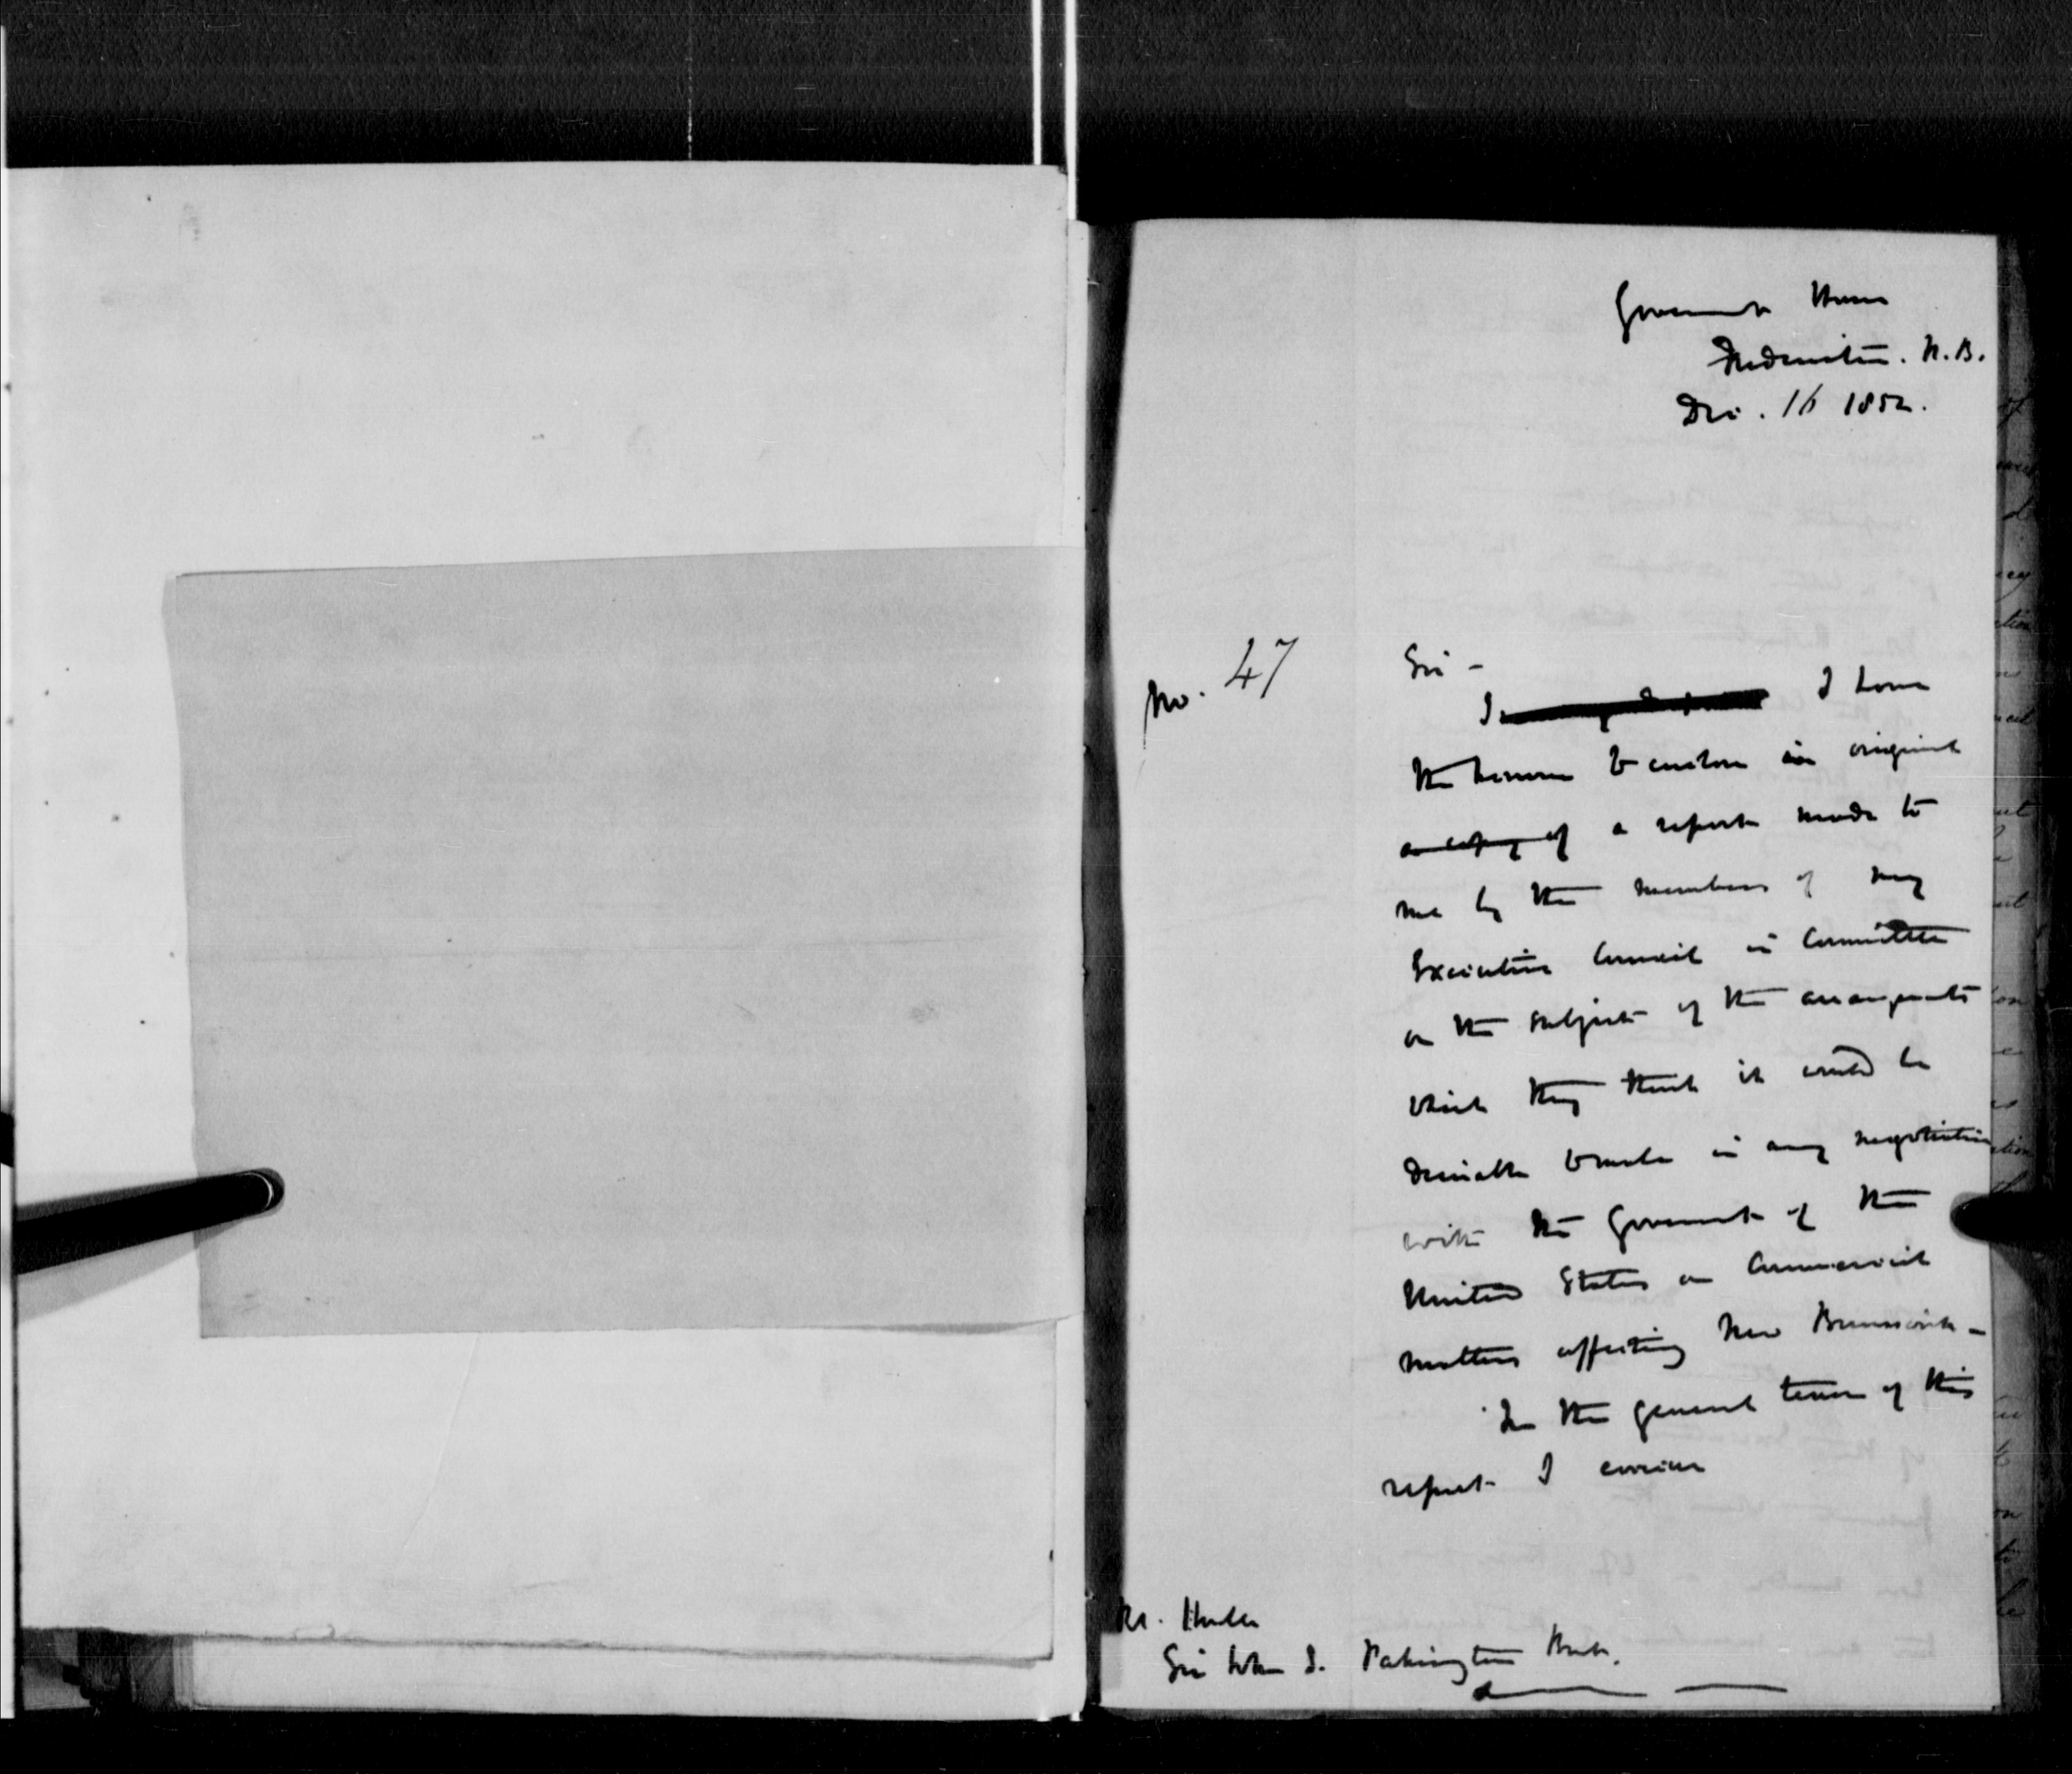 Government House
Fredericton. N.B.
Dec. 16 1852.
No. 47
Sir -
I have
the honour to enclose in original
a copy of a report made to
me by the members of my
Executive Council in Committee
on the subject of the arrangements
which they think it would be
desirable to make in any negotiation
with the Government of the
United States on Commercial
matters affecting New Brunswick -
In the general tenor of this
report I concur
Rt. Honble
Sir John S. Pakington Bart.